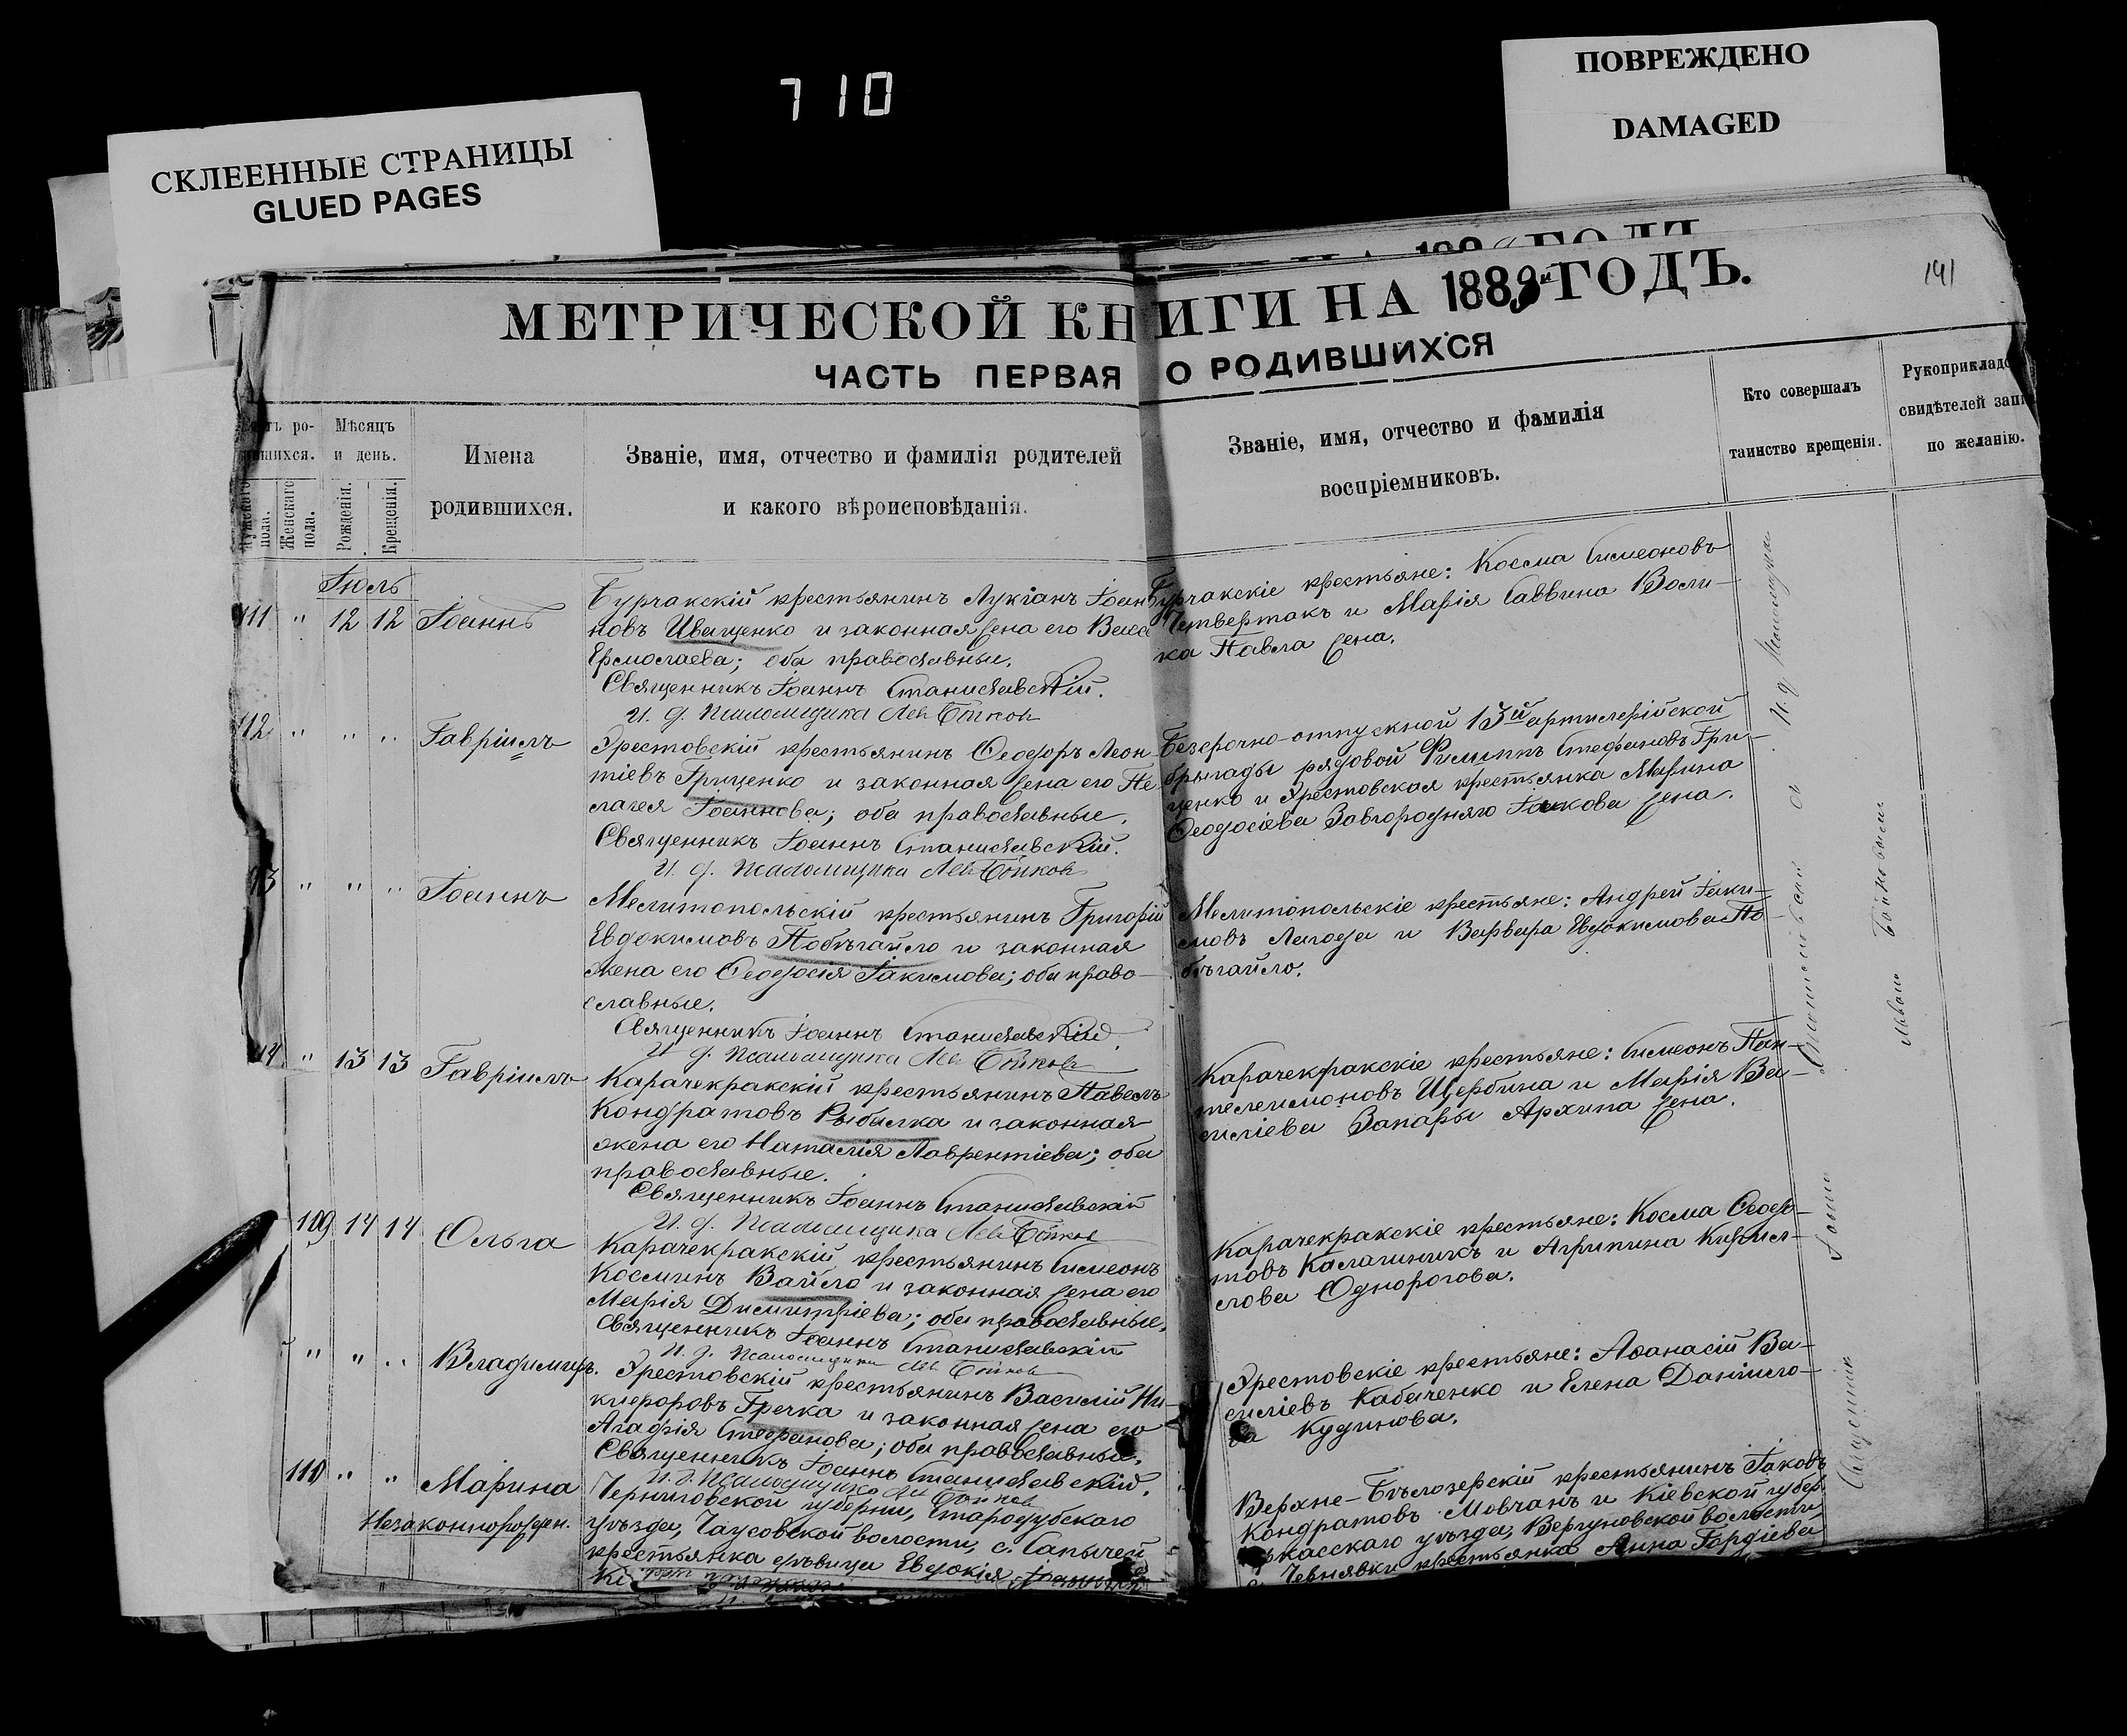 710
СКЛЕЕННЫЕ СТРАНИЦЫ
GLUED PAGES
ПОВРЕЖДЕНО
DAMAGED
МЕТРИЧЕСКОЙ КНИГИ НА 1889й ГОДЪ.
141
ЧАСТЬ ПЕРВАЯ О РОДИВШИХСЯ
Мѣсяцъ
и день.
Женскаго
пола.
Рожденія.
Крещенія.
Имена
родившихся.
Званіе, имя, отчество и фамилія родителей
и какого вѣроисповѣданія.
Званіе, имя, отчество и фамилія
воспріемниковъ.
Кто совершалъ
таинство крещенія.
свидѣтелей
по желанію.
Іюль
111 " 12 12 Іоаннъ
Бурчакскій крестьянинъ Лукіанъ Іоан
новъ Иващенко и законная жена его
Ермолаева; оба православные.
Священникъ Іоаннъ Станиславскій.
И. д. Псаломщика Левъ Бойковъ
Бурчакскіе крестьяне: Косма Симеоновъ
Четвертакъ и Марія Саввина Воли-
ка Павла жена.
112 " " " Гавріилъ
Эрестовскій крестьянинъ Ѳеодоръ Леон
тіевъ Гриценко и законная жена его Пе
лагея Іоаннова; оба православные.
Священникъ Іоаннъ Станиславскій.
И. д. Псаломщика Левъ Бойковъ
Безсрочно-отпускной 13й артилерійской
бригады рядовой Филиппъ Стефановъ Гри-
ценко и Эрестовская крестьянка Марина
Ѳеодосіева Завгородняго Іакова жена.
" " " Іоаннъ
Мелитопольскій крестьянинъ Григорій
Евдокимовъ Побѣгайло и законная
жена его Ѳеодосія Іакимова; оба право-
славные.
Священникъ Іоаннъ Станиславскій.
И. д. Псаломщика Левъ Бойковъ
Мелитопольскіе крестьяне: Андрей Іаки-
мовъ Лагода и Варвара Евдокимова По-
бѣгайло.
" 13 13 Гавріилъ
Карачекракскій крестьянинъ Павелъ
Кондратовъ Рыбалка и законная
жена его Наталія Лаврентіева; оба
православные.
Священникъ Іоаннъ Станиславскій
И. д. Псаломщика Левъ Бойковъ
Карачекракскіе крестьяне: Симеонъ Пан-
телеимоновъ Щербина и Марія Ва-
силіева Запары Архипа жена.
109 14 14 Ольга
Карачекракскій крестьянинъ Симеонъ
Косминъ Вайло и законная жена его
Марія Димитріева; оба православные.
Священникъ Іоаннъ Станиславскій
И. д. Псаломщика Левъ Бойковъ
Карачекракскіе крестьяне: Косма Ѳеодо-
товъ Калашникъ и Агрипина Кирил-
лова Однорогова.
" " " Владимиръ.
Эрестовскій крестьянинъ Василій Ни-
кифоровъ Гречка и законная жена его
Агафія Стефанова; оба православные.
Священникъ Іоаннъ Станиславскій.
И. д. Псаломщика Левъ Бойковъ
Эрестовскіе крестьяне: Аѳанасій Ва-
силіевъ Кабаченко и Елена Даніило-
ва Кудинова.
110 " " Марина
Незаконнорожден.
Черниговской губерніи, Стародубскаго
уѣзда, Чаусовской волости, с. Сапычей
крестьянка дѣвица Евдокія
Верхне-Бѣлозерскій крестьянинъ Іаковъ
Кондратовъ Мовчанъ и Кіевской губер.
уѣзда, Вергуновской волости,
крестьянка Анна Гордіева
Священникъ Іоаннъ Станиславскій